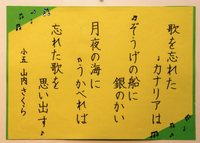 歌を忘れた
カナリアは
ぞうげの船に
銀のかい
月夜の海に
うかべれば
忘れた歌を
思い出す
小五 山内さくら